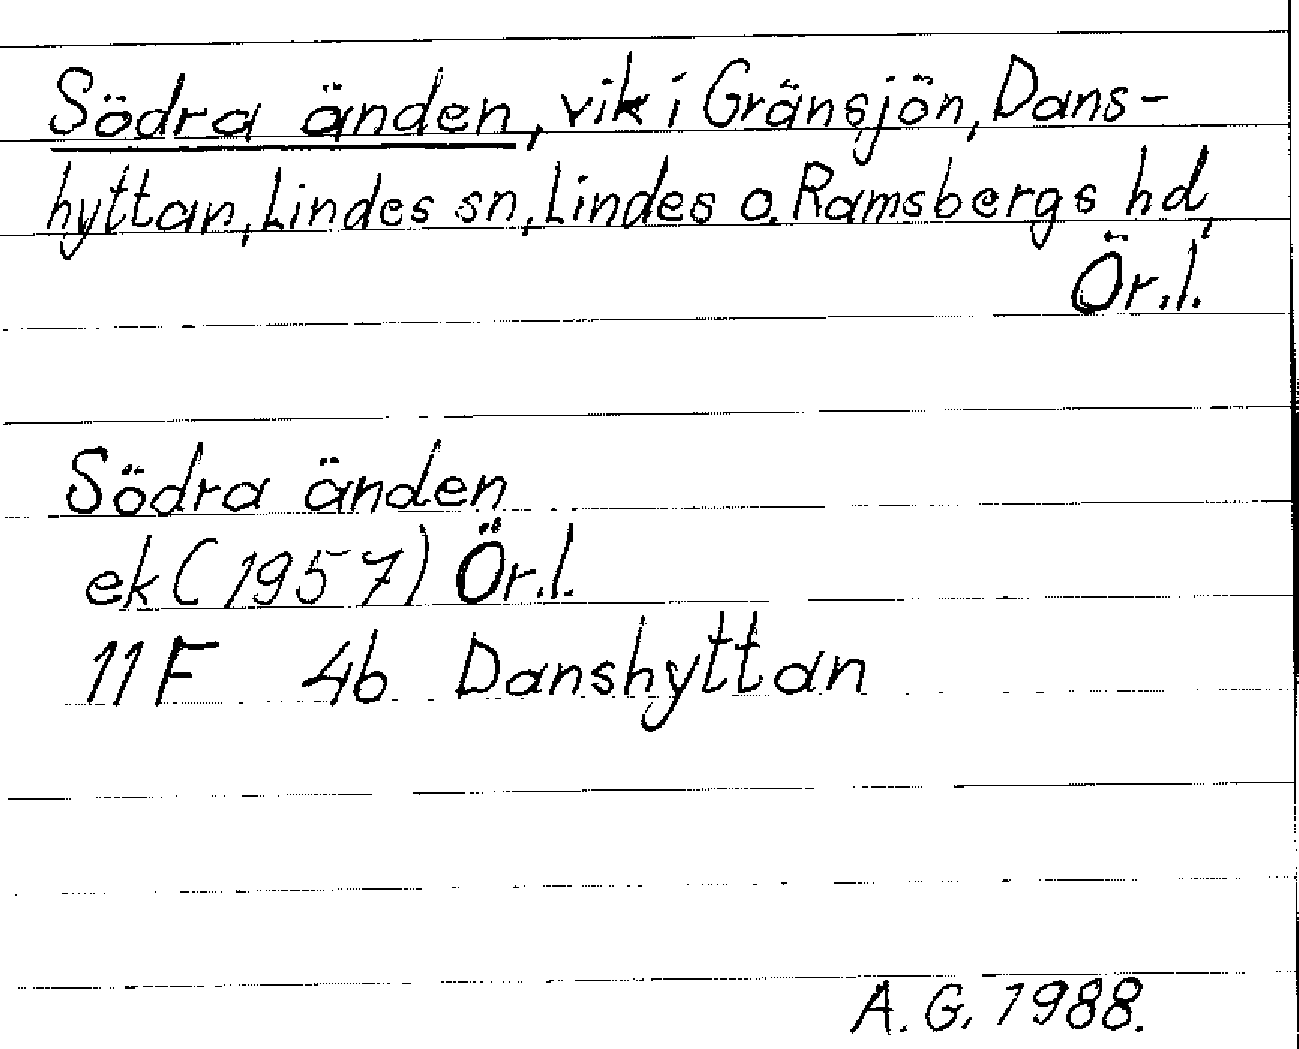 Södra änden, vik i Gränsjön, Dans-
hyttan, Lindes sn, Lindes o. Ramsbergs hd,
Ör.l.
Södra änden
ek (1957) Ör.l.
11F 4b Danshyttan
A. G. 1988.